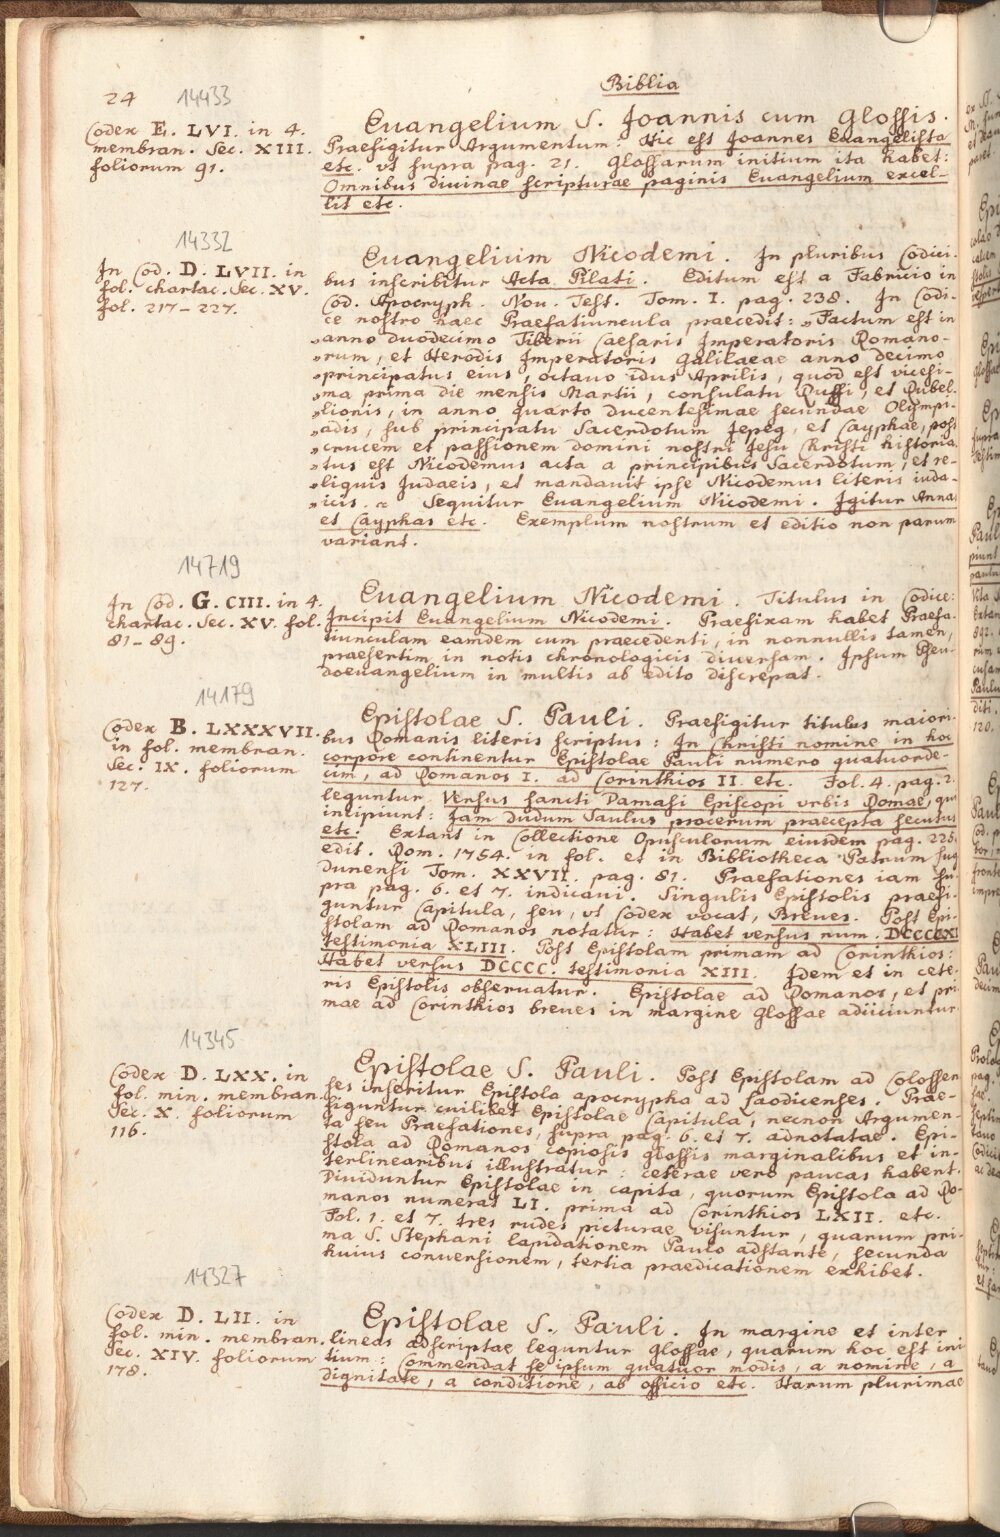 Biblia
24 14433
Codex E. LVI. in 4.
membran. Sec. XIII.
foliorum 91.
Euangelium S. Joannis cum Glossis.
Praefigitur Argumentum: Hic est Joannes Euangelista
etc. vt supra pag. 21. Glossarum initium ita habet:
Omnibus diuinae scripturae paginis Euangelium excel-
lit etc.
14332
In Cod. D. LVII. in
fol. chartac. Sec. XV.
fol. 217-227.
Euangelium Nicodemi. In pluribus Codici-
bus inscribitur Acta Pilati. Editum est a Fabricio in
Cod. Apocryph. Nou. Test. Tom. I. pag. 238. In Codi-
ce nostro haec Praefatiuncula praecedit: „Factum est in
„anno duodecimo Tiberii Caesaris Imperatoris Romano-
„rum, et Herodis Imperatoris Galilaeae anno decimo
„principatus eius, octauo idus Aprilis, quod est vicesi-
„ma prima die mensis Martii, consulatu Ruffi, et Rubel-
„lionis, in anno quarto ducentesimae secundae Olympi-
„adis, sub principatu Sacerdotum Jepeg, et Cayphae, post
„crucem et passionem domini nostri Jesu Christi historia
„tus est Nicodemus acta a principibus Sacerdotum, et re-
„liquis Judaeis, et mandauit ipse Nicodemus literis iuda-
„icis. „ Sequitur Euangelium Nicodemi. Igitur Annas
et Cayphas etc. Exemplum nostrum et editio non parum
variant.
14719
In Cod. G. CIII. in 4.
chartac. Sec. XV. fol.
81-89.
Euangelium Nicodemi. Titulus in Codice:
Incipit Euangelium Nicodemi. Praefixam habet Praefa-
tiunculam eamdem cum praecedenti, in nonnullis tamen,
praesertim in notis chronologicis diuersam. Ipsum Pseu-
doeuangelium in multis ab edito discrepat.
14179
Codex B. LXXXVII.
in fol. membran.
Sec. IX. foliorum
127.
Epistolae S. Pauli. Praefigitur titulus maiori-
bus Romanis literis scriptus: In Christi nomine in hoc
corpore continentur Epistolae Pauli numero quatuorde-
cim, ad Romanos I. ad Corinthios II etc. Fol. 4. pag. 2.
leguntur Versus sancti Damasi Episcopi vrbis Romae, qui
incipiunt: Jam dudum Saulus procerum praecepta secutus
etc. Extant in Collectione Opusculorum eiusdem pag. 225.
edit. Rom. 1754. in fol. et in Bibliotheca Patrum Lug
dunensi Tom. XXVII. pag. 81. Praefationes iam su-
pra pag. 6. et 7. indicaui. Singulis Epistolis praefi-
guntur Capitula, seu, vt Codex vocat, Breues. Post Epi-
stolam ad Romanos notatur: Habet versus num. DCCCCXI
testimonia XLIII. Post Epistolam primam ad Corinthios:
Habet versus DCCCC. testimonia XIII. Idem et in cete-
ris Epistolis obseruatur. Epistolae ad Romanos, et pri-
mae ad Corinthios breues in margine Glossae adiiciuntur.
14345
Codex D. LXX. in
fol. min. membran.
Sec. X. foliorum
116.
Epistolae S. Pauli. Post Epistolam ad Colossen
ses inseritur Epistola apocrypha ad Laodicenses. Prae-
figuntur cuilibet Epistolae Capitula, necnon Argumen-
ta seu Praefationes, supra pag. 6. et 7. adnotatae. Epi-
stola ad Romanos copiosis glossis marginalibus et in-
terlinearibus illustratur: ceterae vero paucas habent.
Diuiduntur Epistolae in capita, quorum Epistola ad Ro-
manos numerat LI. prima ad Corinthios LXII. etc.
Fol. 1. et 7. tres rudes picturae visuntur, quarum pri-
ma S. Stephani lapidationem Paulo adstante, secunda
huius conuersionem, tertia praedicationem exhibet.
14327
Codex D. LII. in
fol. min. membran.
Sec. XIV. foliorum
178.
Epistolae S. Pauli. In margine et inter
lineas adscriptae leguntur Glossae, quarum hoc est ini
tium: Commendat se ipsum quatuor modis, a nomine, a
dignitate, a conditione, ab officio etc. Harum plurimae